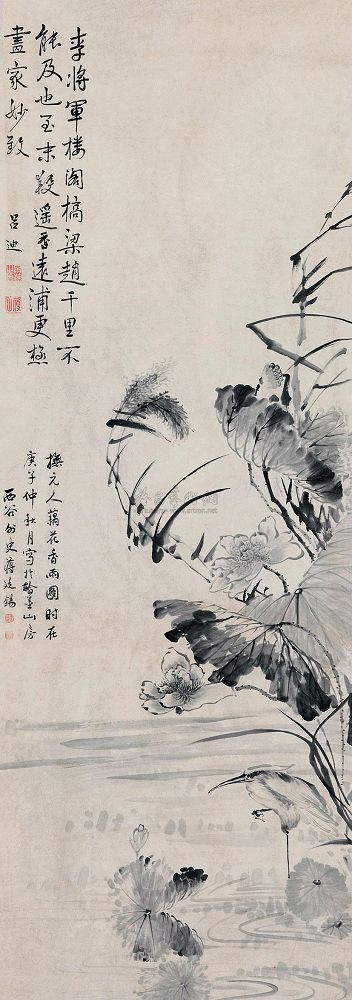 李將軍樓閣橋梁趙千里不
能及也至末段遥香遠浦更極
畫家妙致
吕迪
橅元人藕花香雨圖時在
庚子仲秋月寫於餘墨山房
西谷外史蔣廷錫